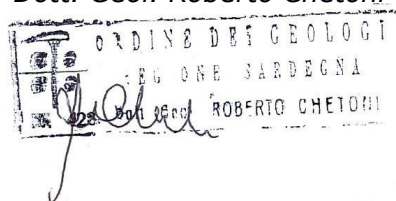 Dott. Geol. Roberto Chetoni
ORDINE DEI GEOLOGI
REGIONE SARDEGNA
ROBERTO CHETONI